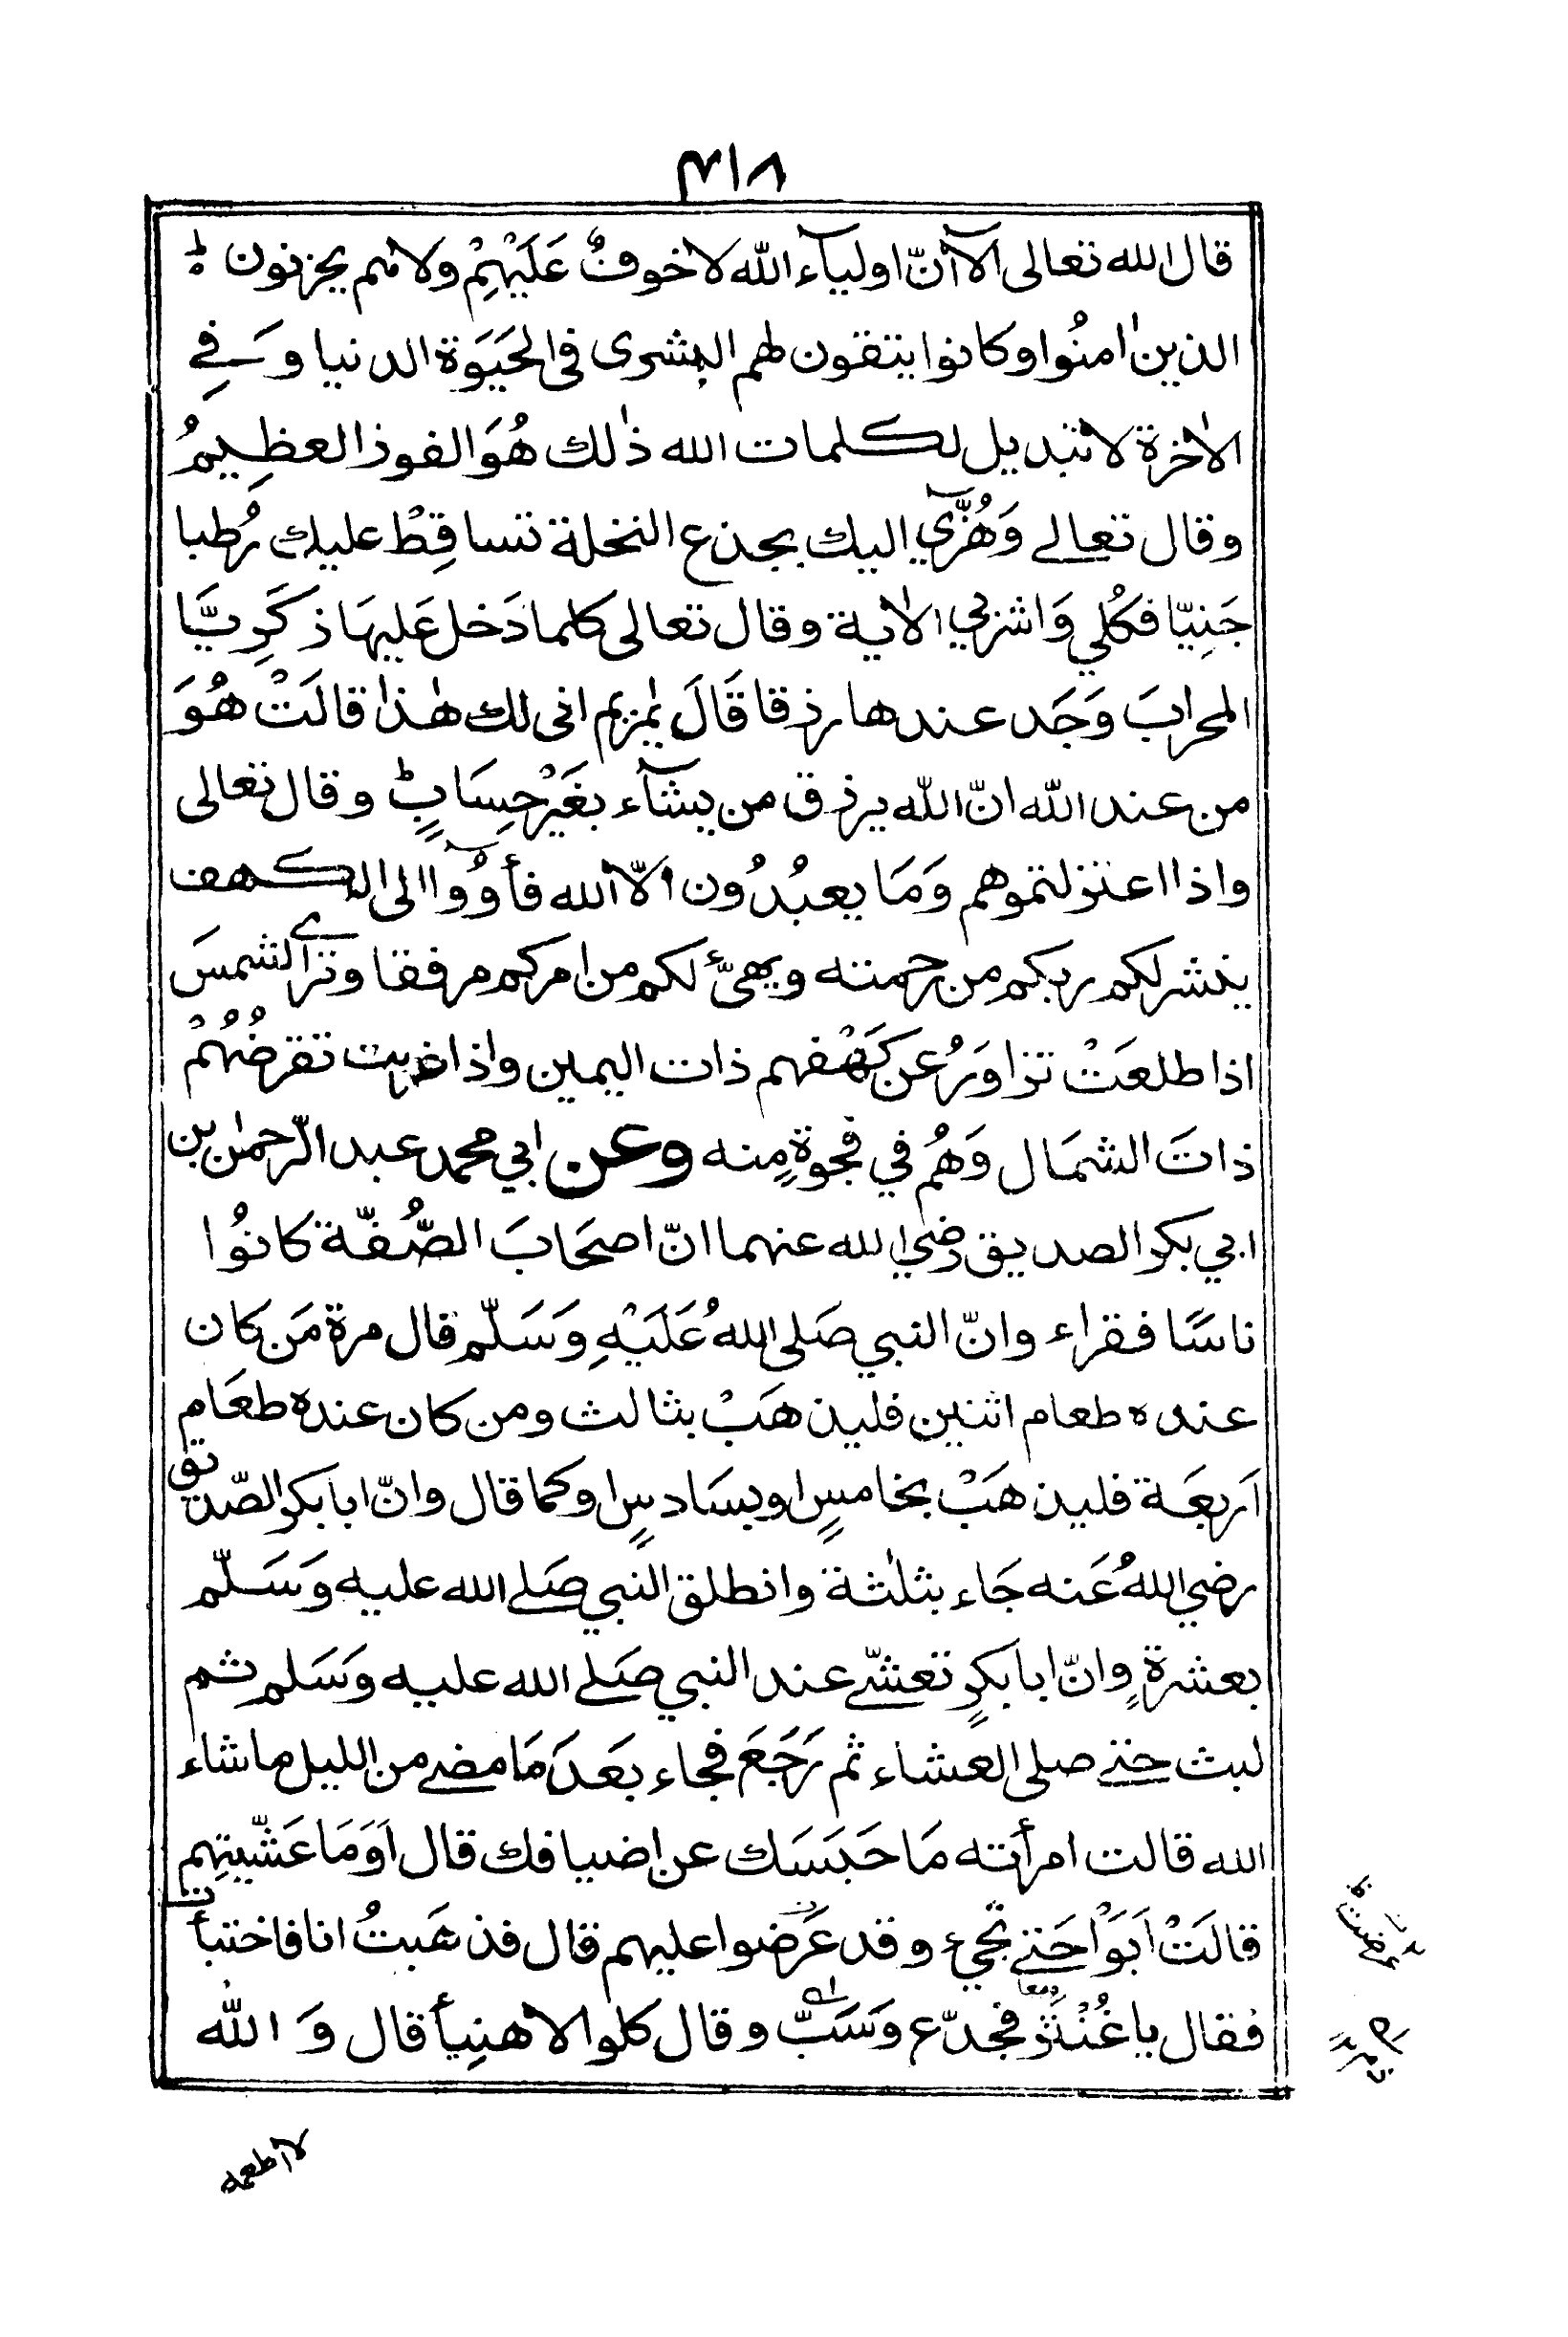 ٤١٨
قال الله تعالى الآ انّ اوليآء الله لا خوفٌ عَلَيْهِمْ ولا هم يحزنون ؕ
الذين اٰمنُوا وكانوا يتقون لهم البشرى فى الحَيَوٰة الدنيا وَفِے
الاٰخرة لا تبديل لكلمات الله ذٰلك هُوَ الفوز العظِيمُ
وقال تعالے وَهُزِّيۤ اليك بجذع النخلة تساقِطْ عليك رُطبا
جَنِيّا فكُلي وَاشربي الاٰية وقال تعالى كلما دَخل عَليهَا زكَرِيَّا
المحرابَ وَجَد عندها رزقا قَالَ يٰمريم انى لك هٰذا قالَتْ هُوَ
من عند الله انّ الله يرزق من يشآء بغَيْر حِسَابٍؕ وقال تعالى
واذا اعتزلتموهم وَمَا يعبُدُون الّا الله فأوُوآ الى الكهف
ينشر لكم ربكم من رحمته ويهيّئ لكم من امركم مرفقا وترى الشمسَ
اذا طلعَتْ تزاوَرُ عن كَهْفهم ذات اليمين واذا غربت تقرضُهُمْ
ذاتَ الشمَال وَهُم في فجوةٍ منه وعن ابي محمد عبد الرّحمٰن بن
ابي بكر الصديق رضي الله عنهما انّ اصحَابَ الصُّفّة كانُوا
ناسًا فقراء وانّ النبي صَلى اللهُ عَلَيْهِ وَسَلّم قال مرة مَن كان
عنده طعام اثنين فليذهَبْ بثالث ومن كان عنده طعَام
اَربعَة فليذهَبْ بخامسٍ او بسَادسٍ او كما قال وانّ ابا بكر الصّديق
رضي اللهُ عَنه جَاء بثلٰثة وانطلق النبي صَلے الله عليه وَسَلّم
بعشرةٍ وانّ ابا بكرٍ تعشّے عند النبي صَلے الله عليه وَسَلم ثم
لبث حتے صلى العشاء ثم رَجَعَ فجاء بَعدَ مَا مضے من الليل ما شاء
الله قالت امرأته مَا حَبَسَك عن اضيافك قال اَوَمَا عَشّيتِهم
قالَتْ اَبَوْا حَتے تجيء وقد عَرَضوا عليهم قال فذهَبتُ انا فاختبأت
فقال يا غُنْثَرُ فجدّع وَسَبّ وقال كلوا لا هنِيأ قال وَ الله
لا اطعمه